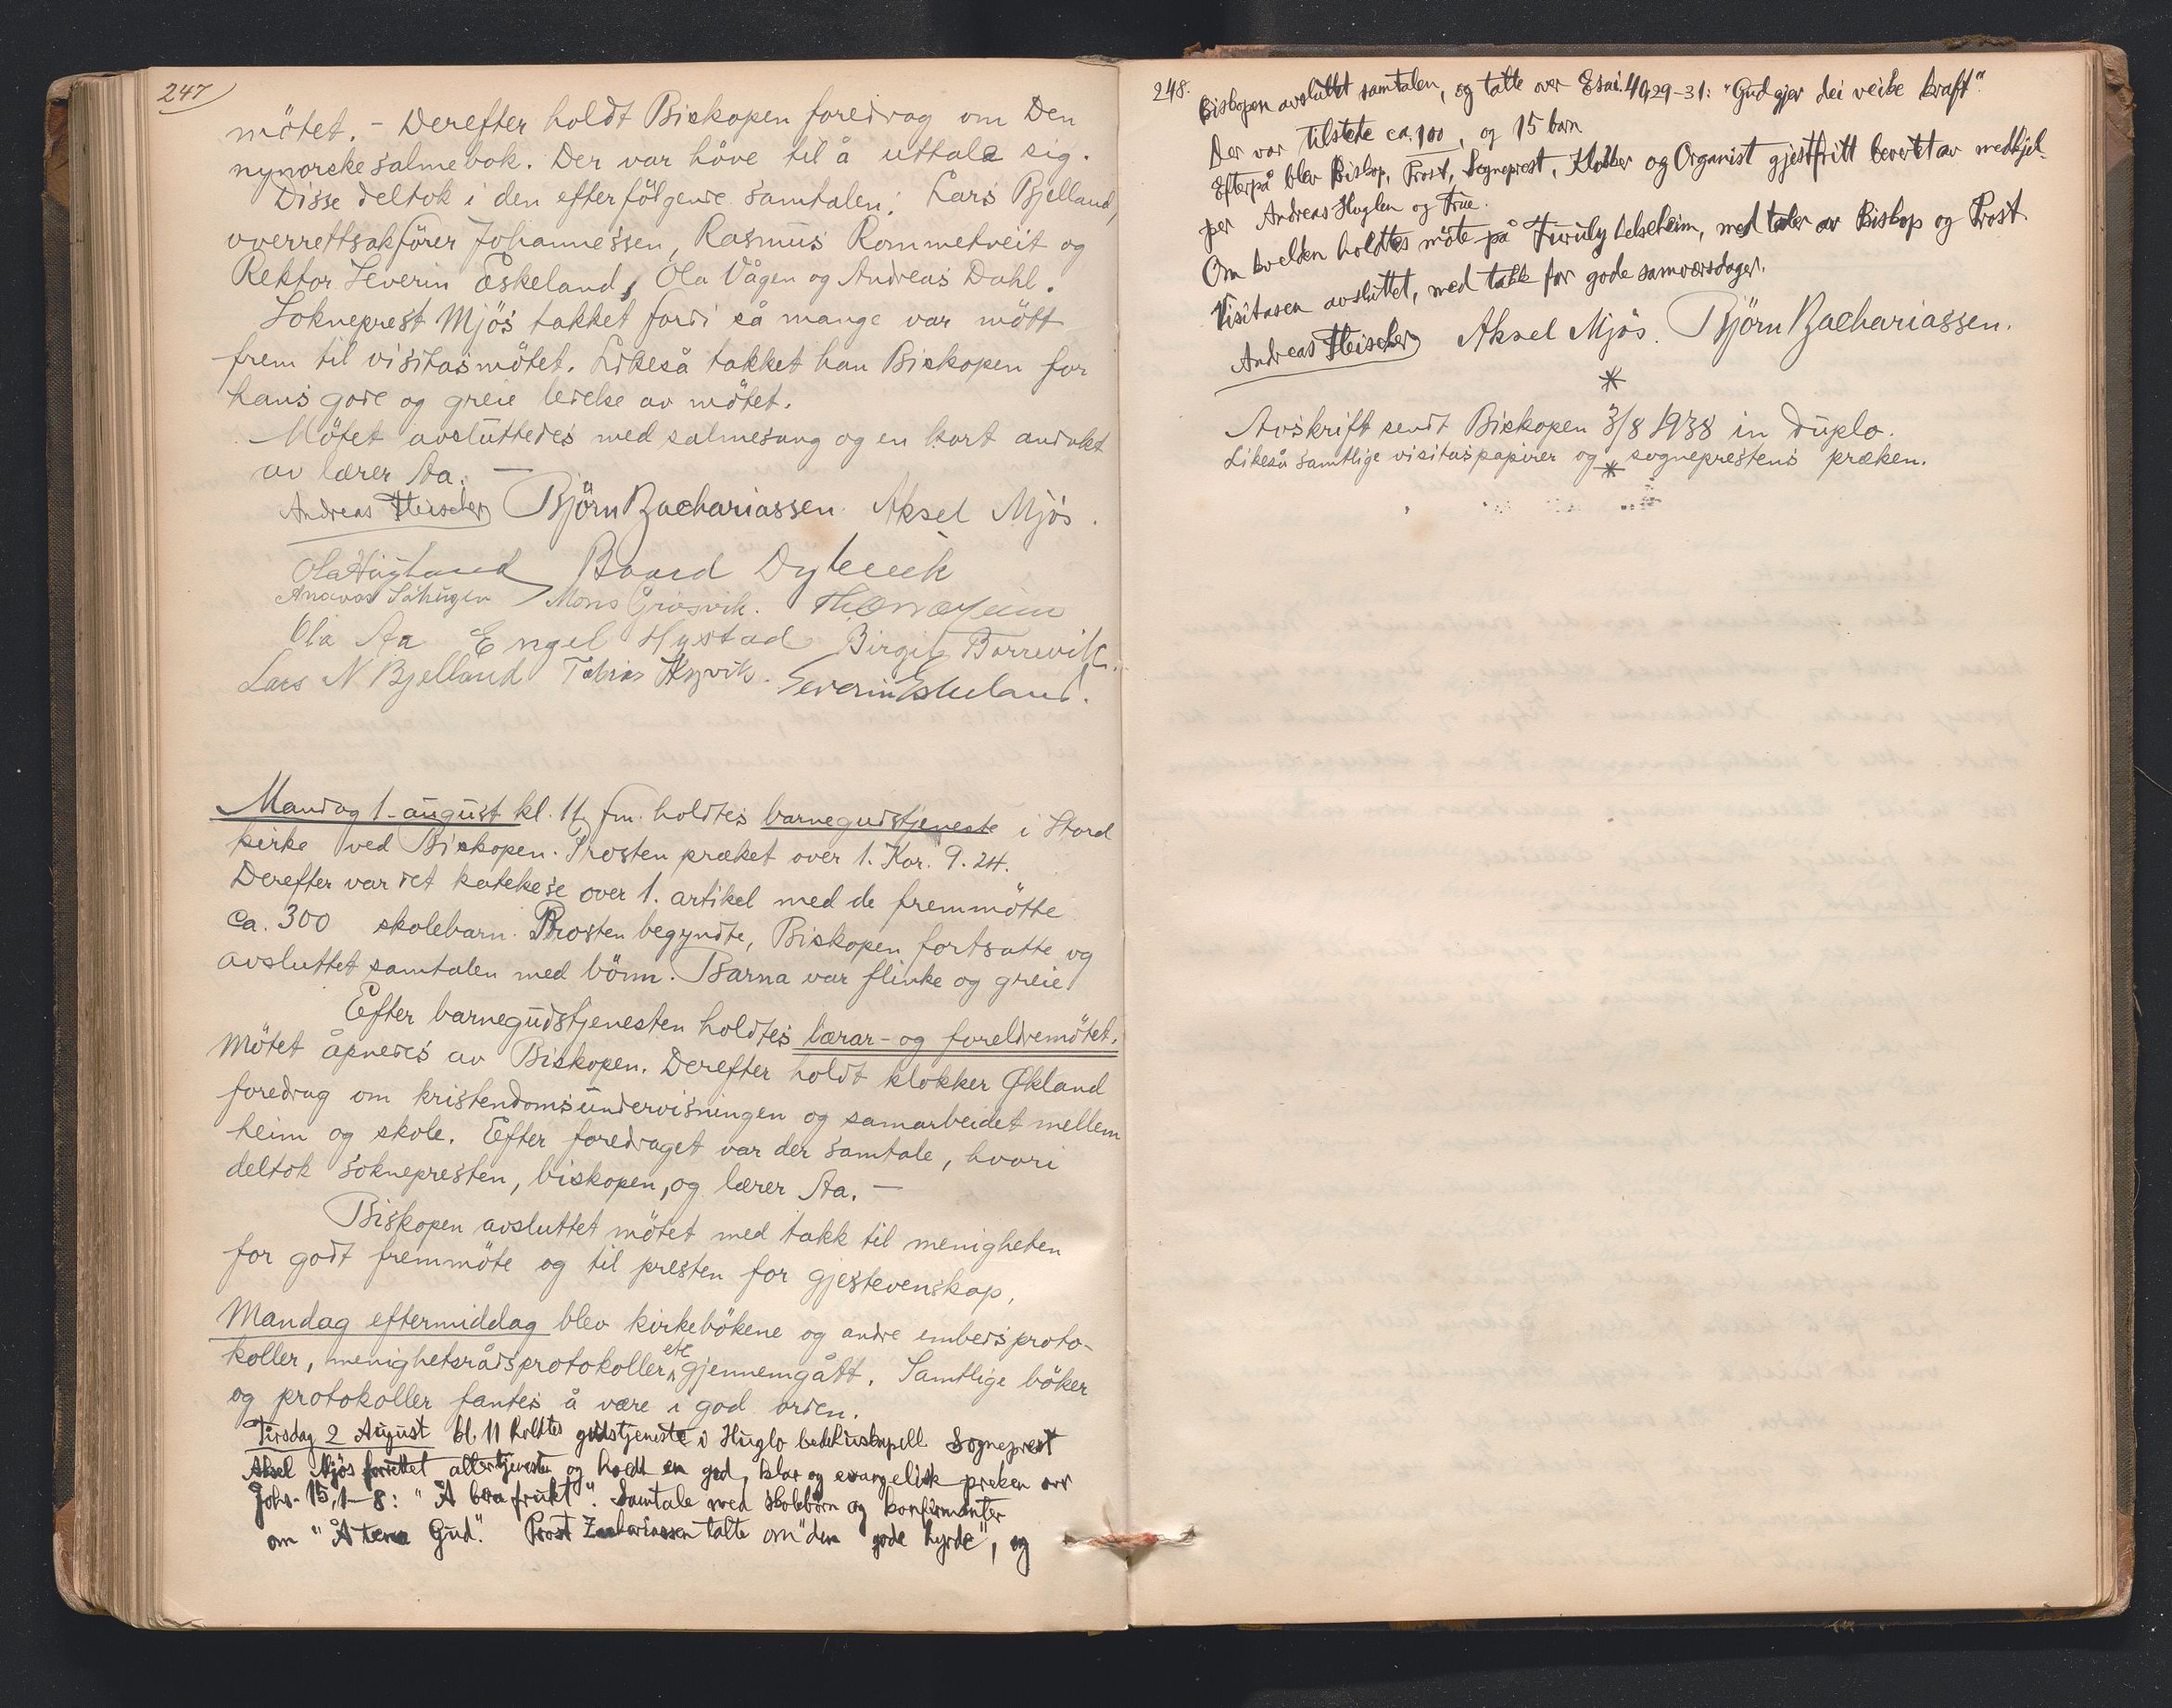 247
mötet. - Derefter holdt Biskopen foredrag om Den
nynorske salmebok. Der var höve til å uttale sig.
Disse deltok i den efterfölgende samtalen: Lars Bjelland,
overrettsakförer Johannessen, Rasmus Rommetveit og
Rektor Severin Eskeland, Ola Vågen og Andreas Dahl.
Sokneprest Mjös takket fordi så mange var mött
frem til visitasmötet. Likeså takket han Biskopen for
hans gode og greie ledelse av mötet.
Mötet avsluttedes med salmesang og en kort andakt
av lærer Aa. —
Andreas Fleischer Björn Zachariassen. Aksel Mjös.
Ola Høyland Baard Dyvik
Mons Grosvik.
Ola Aa Engel Hystad Birgit Borrevik.
Lars N Bjelland Tobias Hysvik. Severin Eskeland.
Mandag 1. august kl. 11 fm. holdtes barnegudstjeneste i Stord
kirke ved Biskopen. Prosten præket over 1. Kor. 9. 24.
Derefter var det katekese over 1. artikel med de fremmötte
ca. 300 skolebarn. Prosten begyndte, Biskopen fortsatte og
avsluttet samtalen med bönn. Barna var flinke og greie.
Efter barnegudstjenesten holdtes lærar- og foreldremötet.
Mötet åpnedes av Biskopen. Derefter holdt klokker Økland
foredrag om kristendomsundervisningen og samarbeidet mellem
heim og skole. Efter foredraget var der samtale, hvori
deltok soknepresten, biskopen, og lærer Aa. —
Biskopen avsluttet mötet med takk til menigheten
for godt fremmöte og til presten for gjestevenskap.
Mandag eftermiddag blev kirkebökene og andre embedsproto-
koller, menighetsrådsprotokoller etc gjennemgått. Samtlige böker
og protokoller fantes å være i god orden.
Tirsdag 2 August kl. 11 holdtes gudstjeneste i Huglo bedehuskapell. Sogneprest
Aksel Mjös forrettet altertjeneste og holdt en god, klar og evangelisk preken over
Johs. 15, 1-8: "Å bera frukt". Samtale med skolebörn og konfirmanter
om "Å tena Gud". Prost Zachariassen talte om "den gode hyrde", og
248.
Biskopen avsluttet samtalen, og talte over Esai. 40,29-31: "Gud gjev dei veike kraft".
Der var tilstede ca. 100, og 15 barn
Efterpå blev Biskop, Prost, Sogneprest, Klokker og Organist gjestfritt bevertet av medhjel-
per Andreas Huglen og Frue.
Om kvelden holdtes möte på Furuly helseheim, med taler av Biskop og Prost.
Visitasen avsluttet, med takk for gode samværsdager.
Andreas Fleischer Aksel Mjös. Björn Zachariassen.
*
Avskrift sendt Biskopen 3/8 1938 in duplo.
Likeså samtlige visitaspapirer og sogneprestens præken.
*